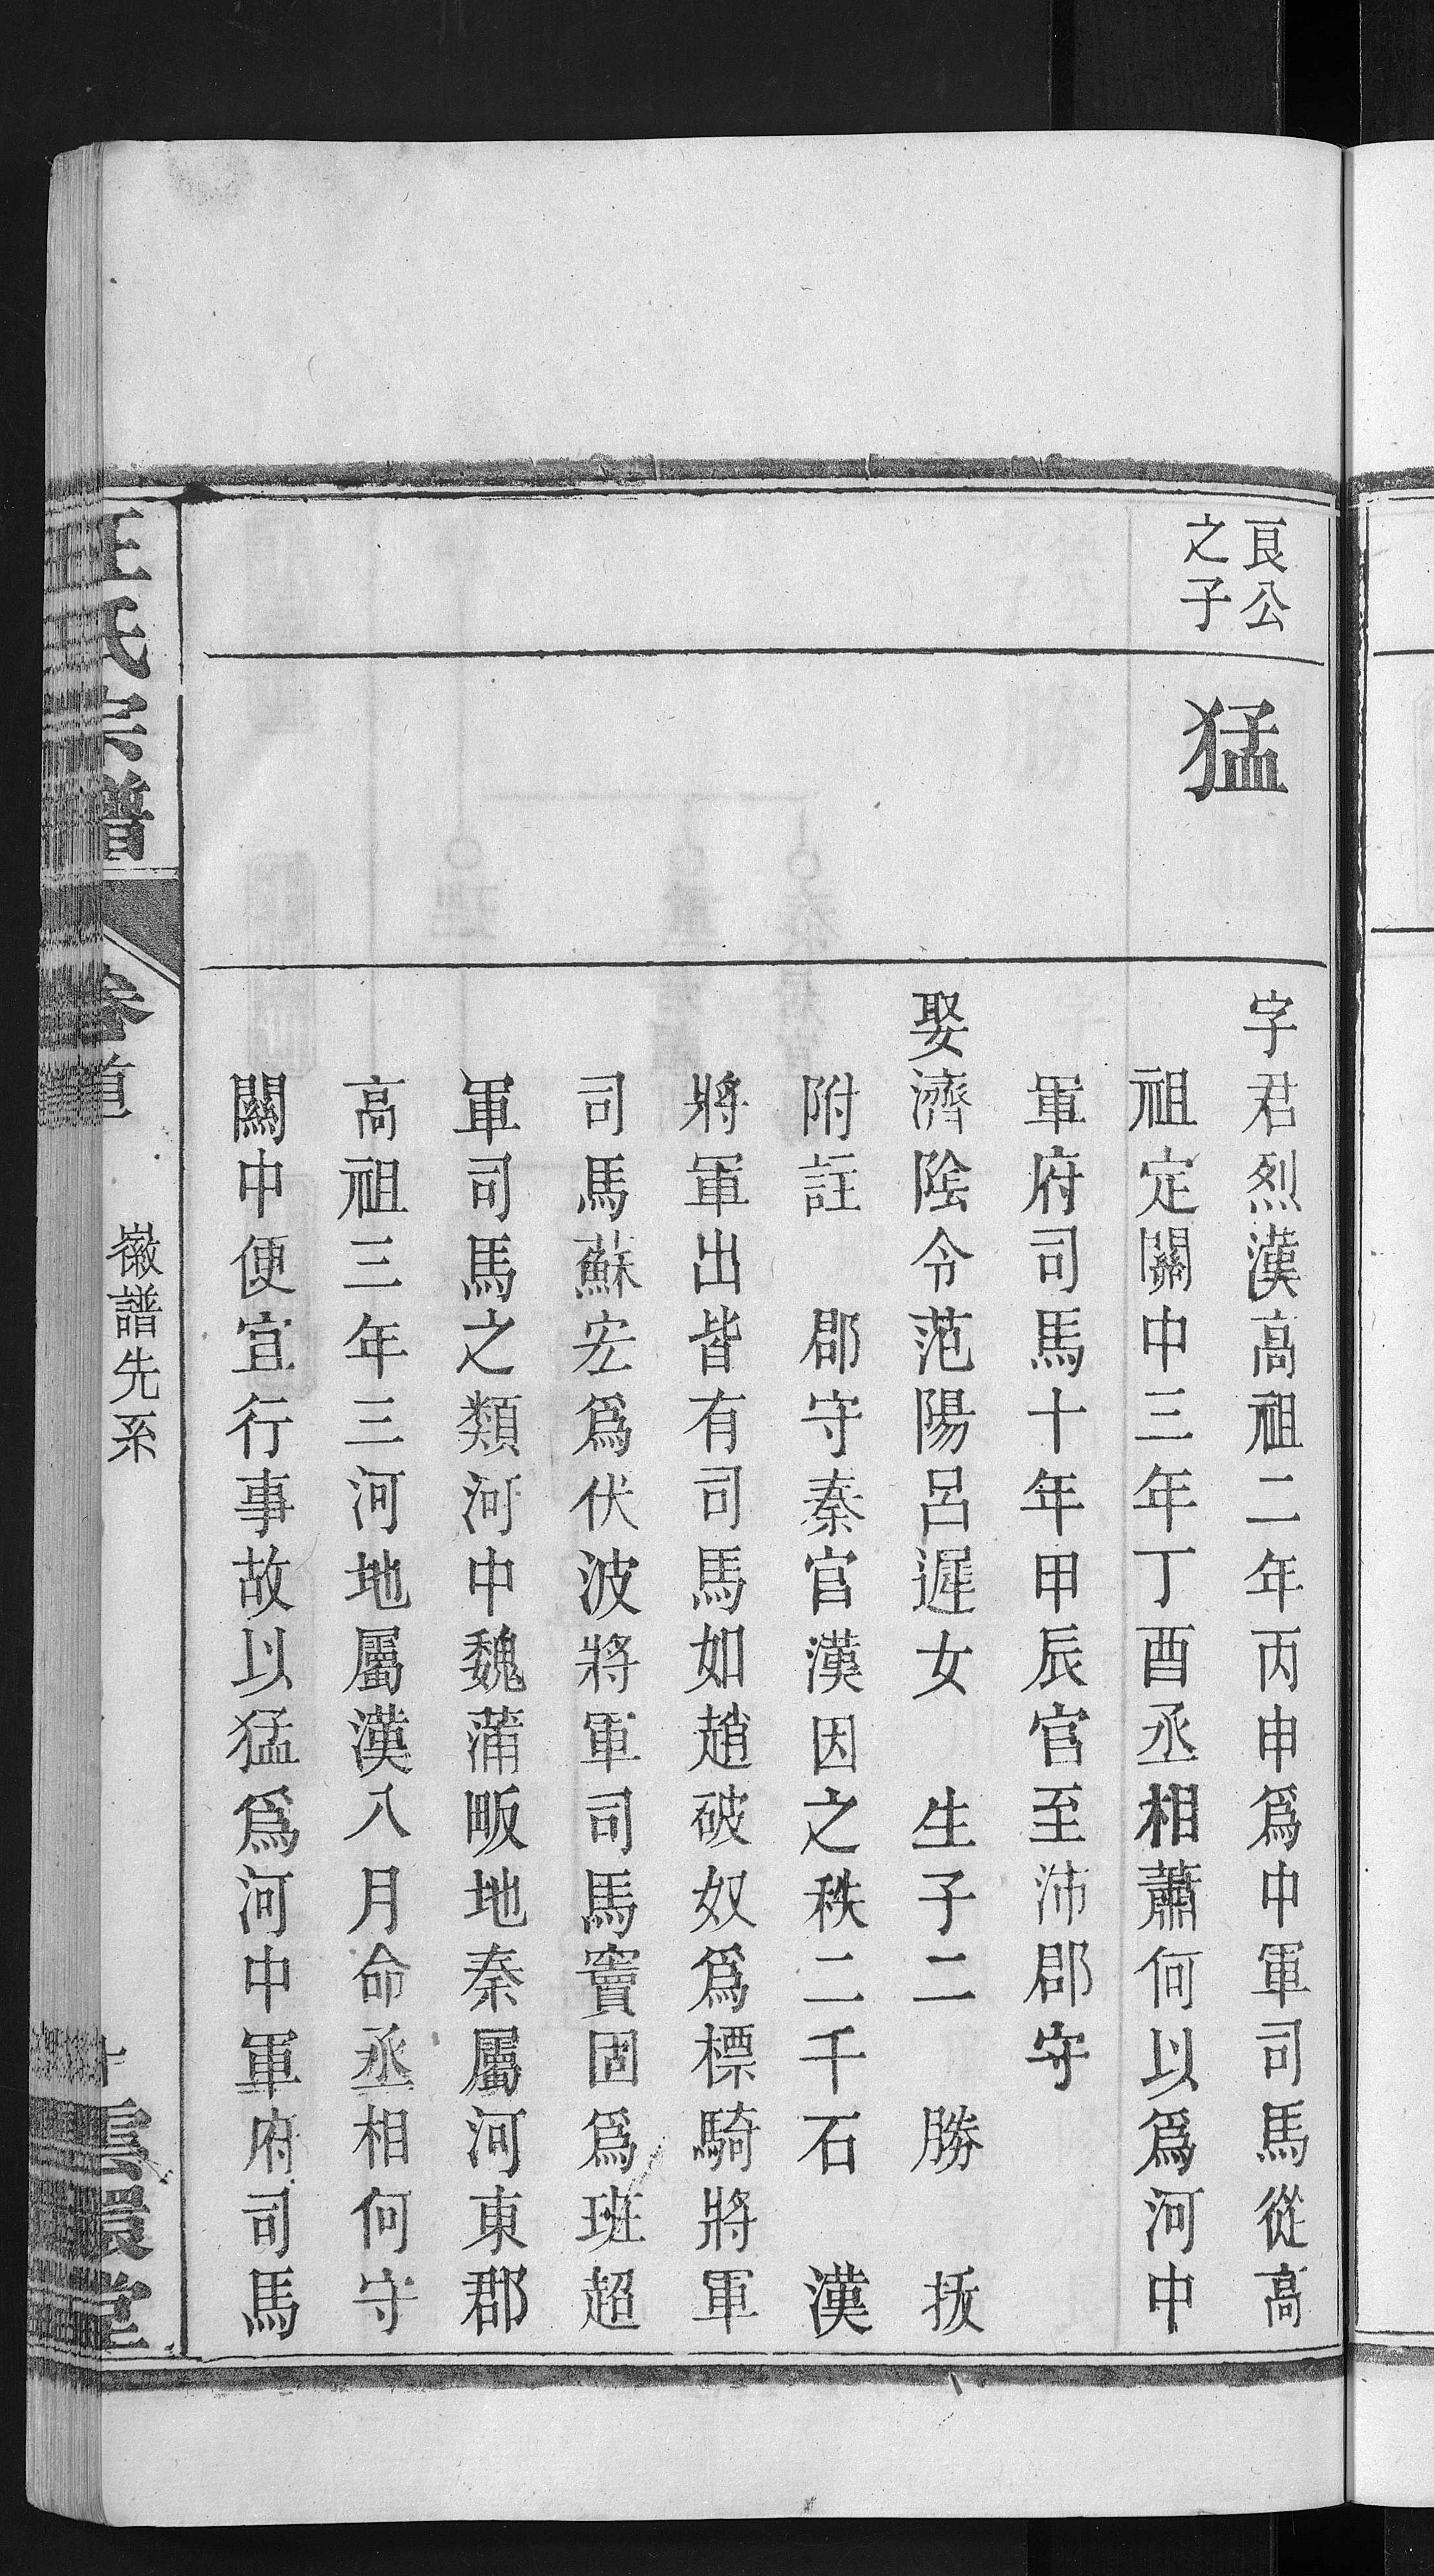 良公
之子
猛
字君烈漢高祖二年丙申爲中軍司馬從高
祖定關中三年丁酉丞相蕭何以爲河中
軍府司馬十年甲辰官至沛郡守
娶濟陰令范陽呂遲女 生子二 勝 拔
附註 郡守秦官漢因之秩二千石 漢
將軍出皆有司馬如趙破奴爲標騎將軍
司馬蘇宏爲伏波將軍司馬竇固爲班超
軍司馬之類河中魏蒲畈地秦屬河東郡
高祖三年三河地屬漢八月命丞相何守
關中便宜行事故以猛爲河中軍府司馬
汪氏宗譜
卷首
徽譜先系
十
雲環堂